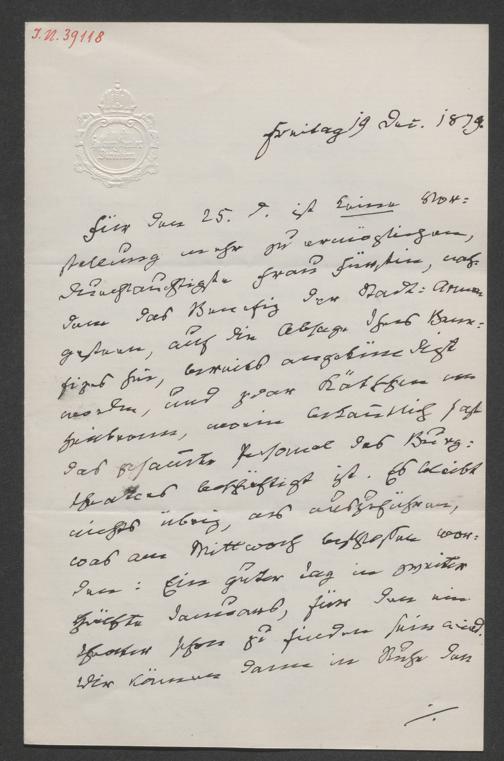 I.N. 39118
Freitag 19 Dec. 1879.
Für den 25. d. ist keine Vor-
stellung mehr zu ermöglichen,
Durchlauchtigste Frau Fürstin, nach-
dem das Benefiz der Stadt-Armen
gestern, auf die Absage Ihres Bene-
fizes hin, bereits angekündigt
worden, und zwar Käthchen von
Heilbronn, worin bekanntlich fast
das gesammte Personal des Burg-
theaters beschäftigt ist. Es bleibt
nichts übrig, als auszuführen,
was am Mittwoch beschlossen wor-
den: Ein guter Tag in zweiter
Hälfte Januars, für den ein
Theater schon zu finden sein wird.
Wir können dann in Ruhe den
./.